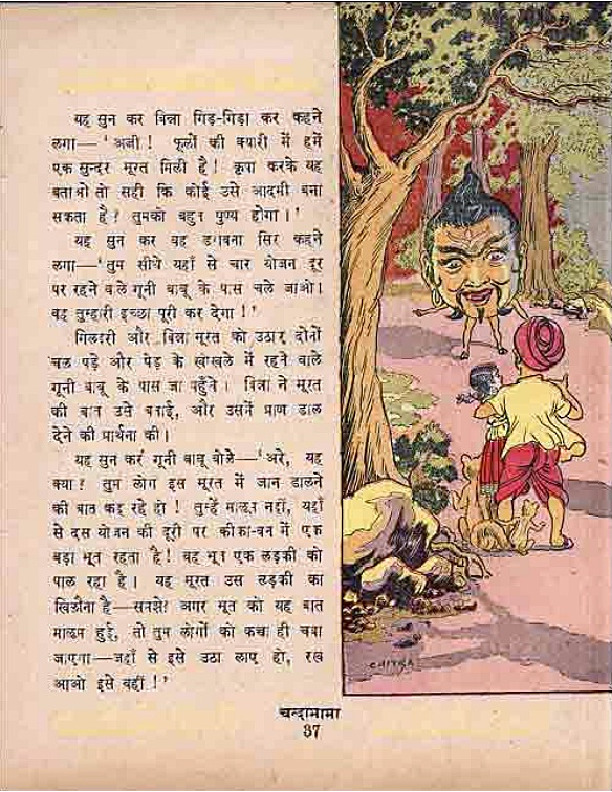 यह सुन कर विन्ना गिड़-गिड़ा कर कहने
लगा—‘अजी ! फूलों की क्यारी में हमें
एक सुन्दर मूरत मिली है ! कृपा करके यह
बताओ तो सही कि कोई उसे आदमी बना
सकता है ? तुमको बहुत पुण्य होगा ।’
यह सुन कर वह डरावना सिर कहने
लगा—‘तुम सीधे यहाँ से चार योजन दूर
पर रहने वाले गूनी बाबू के पास चले जाओ ।
वह तुम्हारी इच्छा पूरी कर देगा !’
गिलहरी और विन्ना मूरत को उठाए दोनों
चल पड़े और पेड़ के खोखले में रहने वाले
गूनी बाबू के पास जा पहुँचे । विन्ना ने मूरत
की बात उसे बताई, और उसमें प्राण डाल
देने की प्रार्थना की ।
यह सुन कर गूनी बाबू बोले—‘अरे, यह
क्या ? तुम लोग इस मूरत में जान डालने
की बात कह रहे हो ! तुम्हें मालूम नहीं, यहाँ
से दस योजन की दूरी पर कीका-वन में एक
बड़ा भूत रहता है ! वह भूत एक लड़की को
पाल रहा है । यह मूरत उस लड़की का
खिलौना है—समझे ? अगर भूत को यह बात
मालूम हुई, तो तुम लोगों को कच्चा ही चबा
जाएगा—जहाँ से इसे उठा लाए हो, रख
आओ इसे वहीं !’
CHITRA
चन्दामामा
37